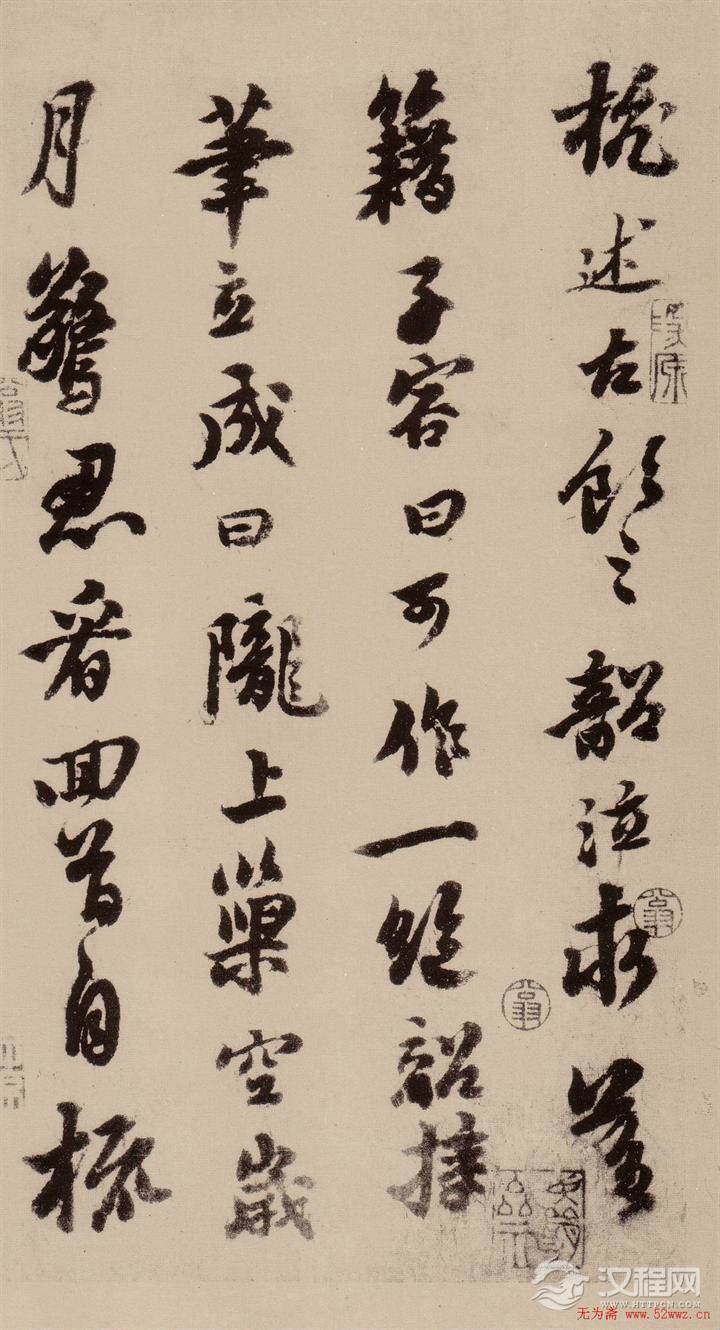 杭述古飲之韶泣求落
籍子容曰可作一絕韶援
筆立成曰隴上巢空歲
月驚忍看回首自梳
汉程网
WWW.HTTPCN.COM
无为斋 www.52wwz.cn